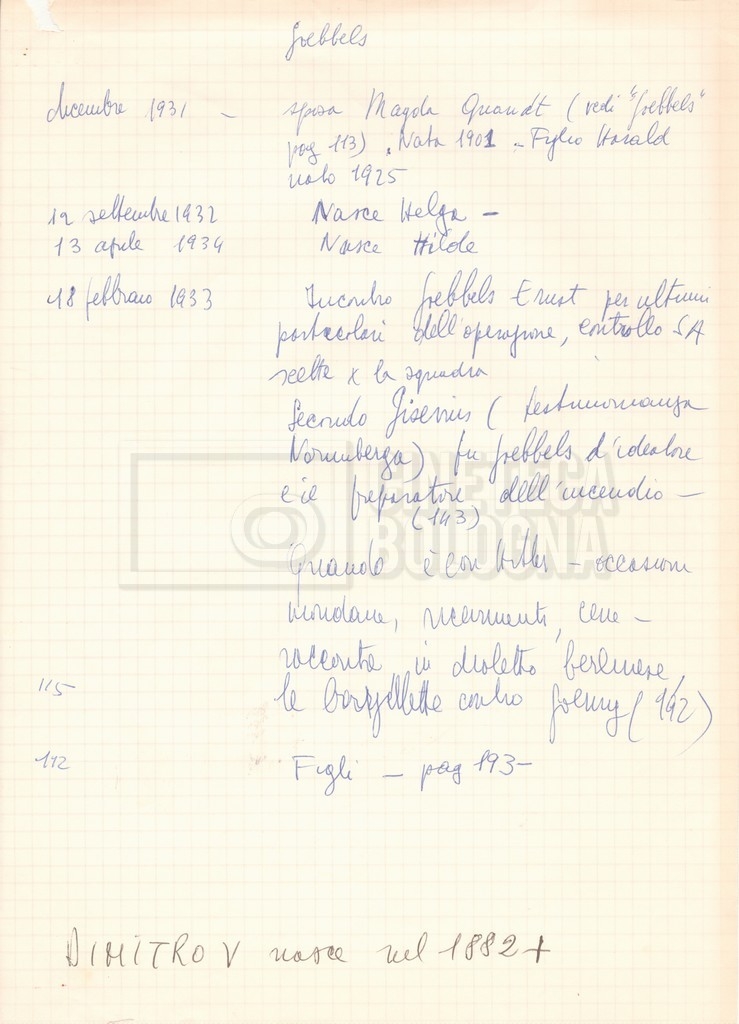 Goebbels
dicembre 1931 - sposa Magda Quandt (vedi "Goebbels"
pag 113). Nata 1901 - Figlio Harald
nato 1925
12 settembre 1932 Nasce Helga -
13 aprile 1934 Nasce Hilde
18 febbraio 1933 Incontro Goebbels Ernst per ultimi
particolari dell'operazione, controllo SA
scelte x la squadra
Secondo Gisevius (testimonianza
Norimberga) fu Goebbels l'ideatore
e il preparatore dell'incendio -
(143)
Quando è con Hitler - occasioni
mondane, ricevimenti, cene -
racconta in dialetto berlinese,
115 le barzellette contro Goering (192)
112 Figli - pag 193-
DIMITROV nasce nel 1882+
CINETECA
BOLOGNA